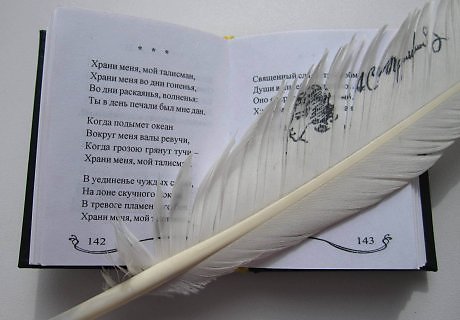 * * *
Храни меня, мой талисман,
Храни меня во дни гоненья,
Во дни раскаянья, волненья:
Ты в день печали был мне дан.
Когда подымет океан
Вокруг меня валы ревучи,
Когда грозою грянут тучи –
Храни меня, мой талисман
В уединенье чуждых
На лоне скучного
В тревоге
Храни меня, мой
142
Священный
Души
Оно
143